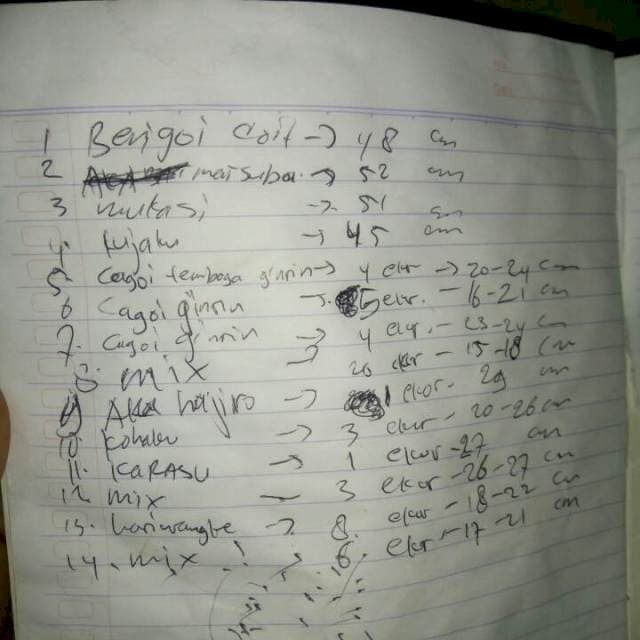 1 Benigoi doit → 48 cm
2 matsuba → 52 cm
3 mutasi → 51 cm
4. kujaku → 45 cm
5. cagoi tembaga ginrin → 4 ekor → 20-24 cm
6 cagoi ginrin → 5 ekor. - 16-21 cm
7. cagoi ginrin → 4 ekor. - 23-24 cm
8. mix → 20 ekor - 15-18 cm
9 Aka hajiro → 1 ekor - 29 cm
10 kohaku → 3 ekor - 20-26 cm
11. KARASU → 1 ekor - 27 cm
12. mix - 3 ekor - 26-27 cm
13. hariwangke → 8. ekor - 18-22 cm
14. mix → 6. ekor - 17-21 cm